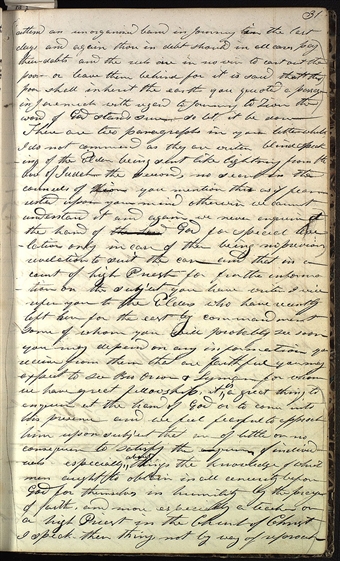 31
attend an unorganised band in journeying in the last
days and again those in debt should in all cases pay
their debts and the rich are in no wise to cast out the
poor or leave them behind for it is said that the
poor shall inherit the earth you quoted a passage
in Jeremiah with regard to journeying to Zion the
word of God stands sure so let it be done
There are two paragraphs in your letter which
I do not commend as they are written blindly speak
ing of the Elders being sent like lightning from the
bow of Judah the second no secrets in the
councils of Zion you mention these as if fear
rested upon your mind otherwise we cannot
understand it and again we never enquire at
the hand of God for special reve
lation only in case of there being no previous
revelation to suit the case and that in a
council of high Priests for further informa
tion on the subject you have written I will
refer you to the Elders who have recently
left here for the east by commandment
some of whom you will probably see soon
you may depend on any information you
receive from them that are faithful you may
expect to see Brs Orson & Lyman for whom
we have great fellowship, it is a great thing to
enquire at the hand of God or to come into
his presence and we feel fearful to approach
him upon subjects that are of little or no
consequence to satisfy the queries of individ
uals especially things the knowledge of which
men ought to obtain in all sincerity before
God for themselves in humility by the prayer
of faith, and more especially a teacher or
a high Priest in the Church of Christ
I speak these things not by way of reproach